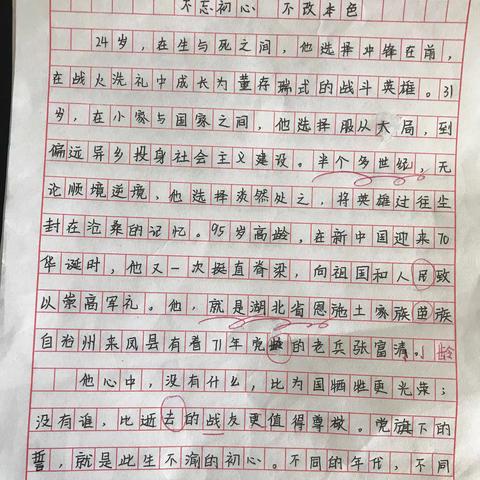 不忘初心 不改本色
24岁，在生与死之间，他选择冲锋在前，
在战火洗礼中成长为董存瑞式的战斗英雄。31
岁，在小家与国家之间，他选择服从大局，到
偏远异乡投身社会主义建设。半个多世纪，无
论顺境逆境，他选择淡然处之，将英雄过往尘
封在沧桑的记忆。95岁高龄，在新中国迎来70
华诞时，他又一次挺直脊梁，向祖国和人民致
以崇高军礼。他，就是湖北省恩施土家族苗族
自治州来凤县有着71年党的老兵张富清。龄
他心中，没有什么，比为国牺牲更光荣；
没有谁，比逝去的战友更值得尊敬。党旗下的
誓，就是此生不渝的初心。不同的年代，不同